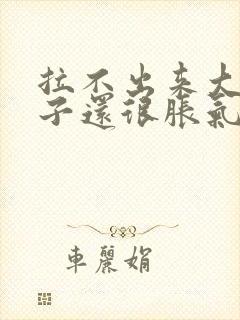 拉不出来大
子還很脹氣
車麗娟